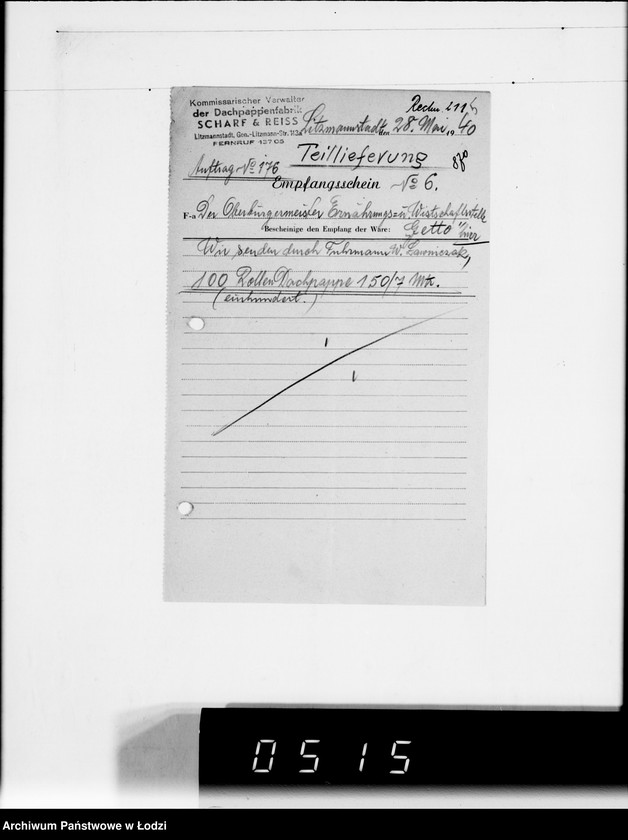 Rechn 211
Kommissarischer Verwalter
der Dachpappenfabrik
SCHARF & REISS
Litzmannstadt, Gen.-Litzmann-Str. 113a
FERNRUF 127 03
Litzmannstadt, den 28. Mai 1940
Teillieferung
870
Auftrag No 176
Empfangsschein No 6.
F-a Der Oberbürgermeister Ernährungs- u. Wirtschaftsstelle
Bescheinige den Empfang der Ware: Getto "hier
Wir senden durch Fuhrmann W. Ławniczak,
100 Rollen Dachpappe 150/7 Mk.
(einhundert.)
0515
Archiwum Państwowe w Łodzi